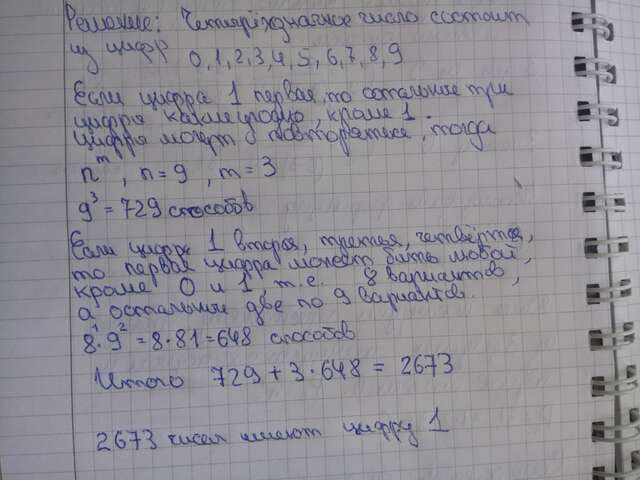 Решение: Четырёхзначное число состоит
из цифр 0,1,2,3,4,5,6,7,8,9
Если цифра 1 первая, то остальные три
цифры какие угодно, кроме 1.
Цифры может повторяться, тогда
n^m, n=9, m=3
9^3 = 729 способов
Если цифра 1 вторая, третья, четвёртая,
то первая цифра может быть любой,
кроме 0 и 1, т.е. 8 вариантов,
а остальные две по 9 вариантов.
8^1·9^2 = 8·81=648 способов
Итого 729 + 3·648 = 2673
2673 чисел имеют цифру 1